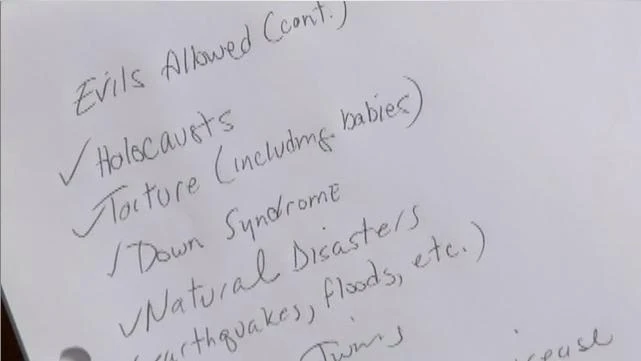 Evils Allowed (cont.)
✓Holocausts
✓Torture (including babies)
✓Down Syndrome
✓Natural Disasters
(earthquakes, floods, etc.)
Twins